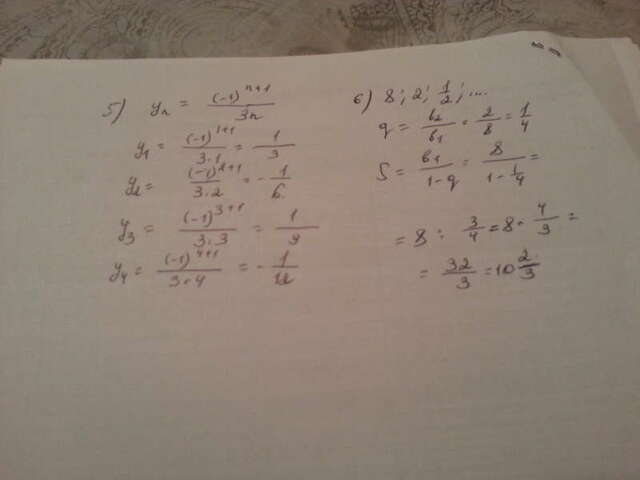 5) yₙ = (-1)ⁿ⁺¹ / 3n
y₁ = (-1)¹⁺¹ / 3·1 = 1/3
y₂ = (-1)²⁺¹ / 3·2 = - 1/6
y₃ = (-1)³⁺¹ / 3·3 = 1/9
y₄ = (-1)⁴⁺¹ / 3·4 = - 1/12
6) 8; 2; 1/2; ...
q = b₂/b₁ = 2/8 = 1/4
S = b₁ / 1-q = 8 / 1 - 1/4 =
= 8 : 3/4 = 8 · 4/3 =
= 32/3 = 10 2/3